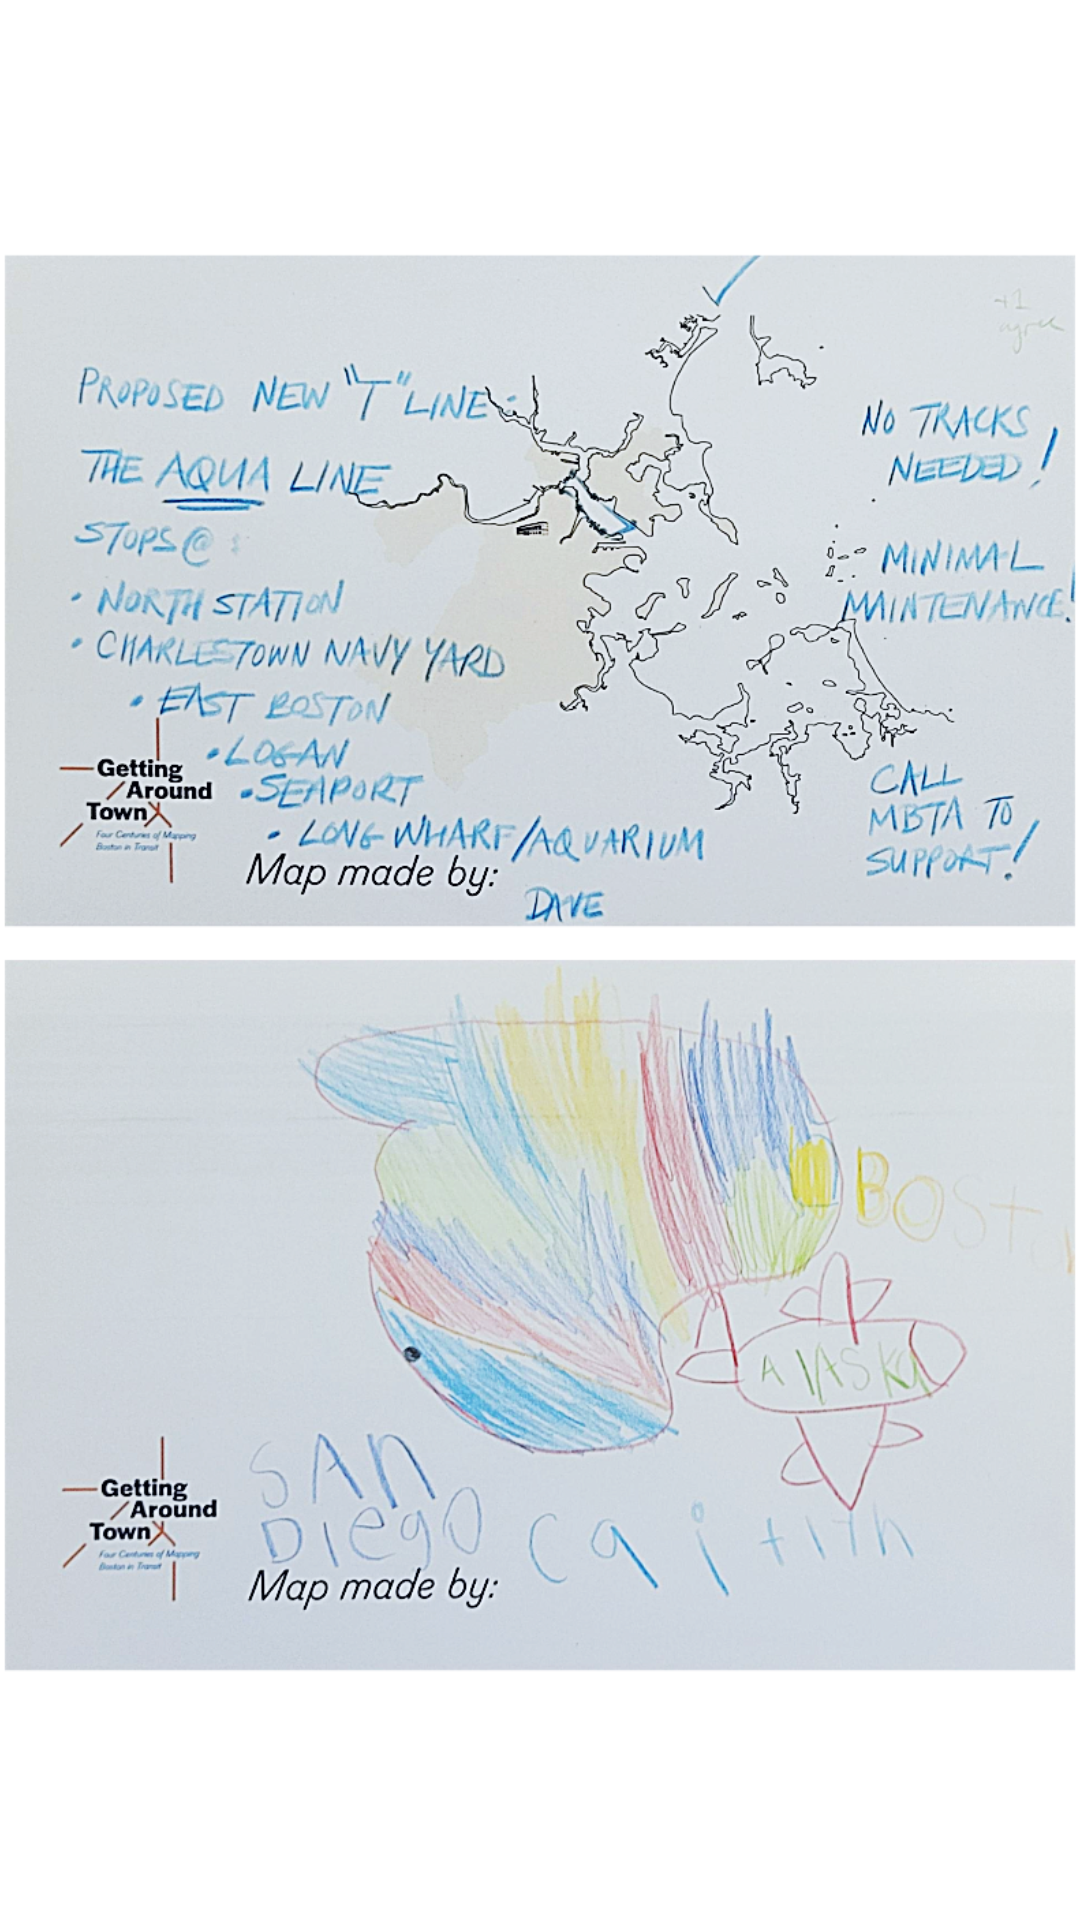 +1
agree
PROPOSED NEW "T" LINE:
THE AQUA LINE
STOPS @:
• NORTH STATION
• CHARLESTOWN NAVY YARD
• EAST BOSTON
• LOGAN
• SEAPORT
• LONG WHARF/AQUARIUM
NO TRACKS
NEEDED!
MINIMAL
MAINTENANCE!
CALL
MBTA TO
SUPPORT!
Getting
Around
Town
Four Centuries of Mapping
Boston in Transit
Map made by:
DAVE
BOSton
AlASKa
SAn
DIego
Getting
Around
Town
Four Centuries of Mapping
Boston in Transit
Map made by: